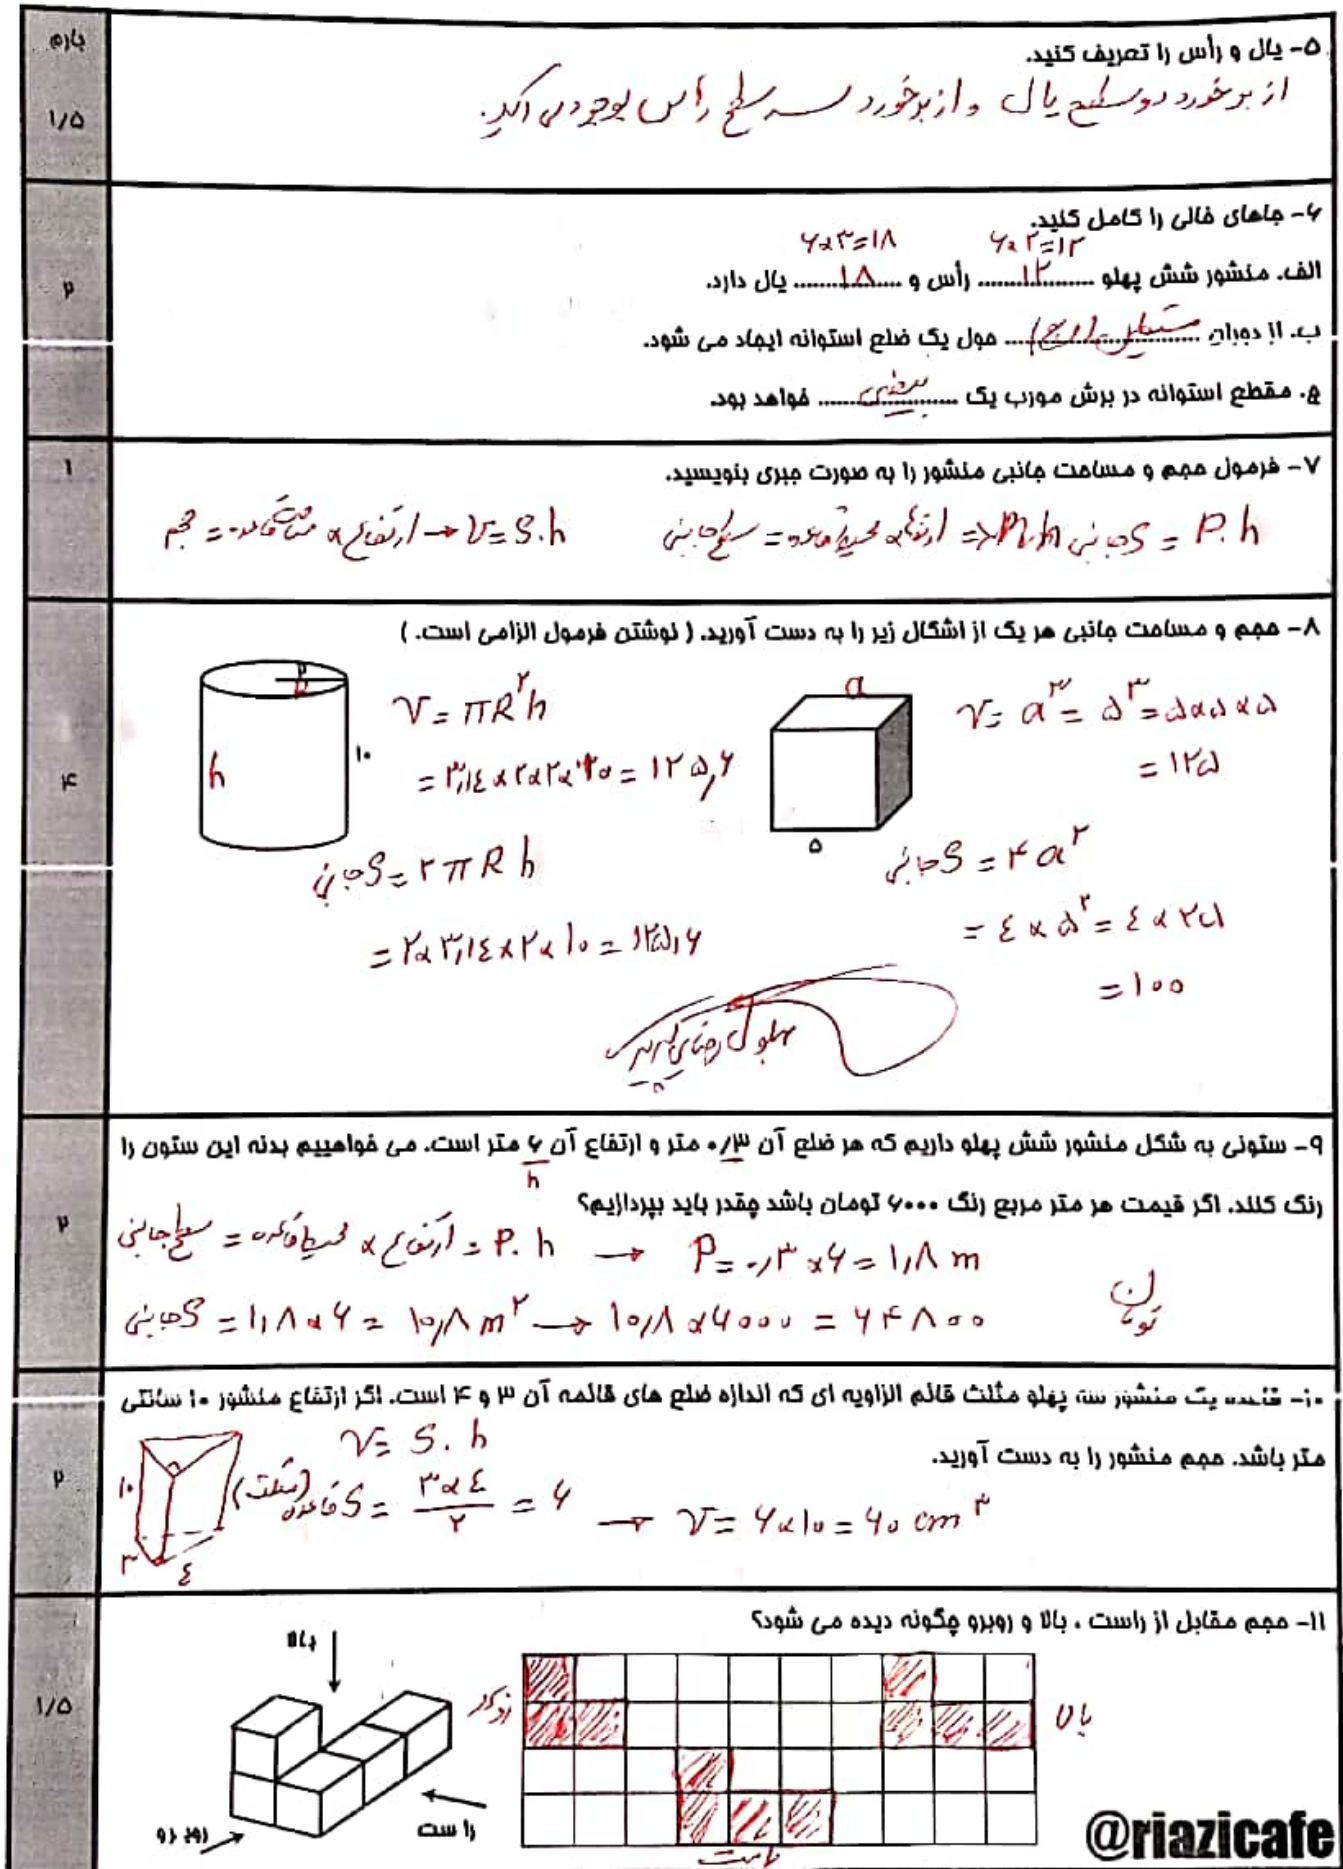 بارم
۵- یال و رأس را تعریف کنید.
۱/۵
از برخورد دو سطح یال و از برخورد سه سطح رأس بوجود می آید.
۶- جاهای خالی را کامل کنید.
۶×۲=۱۲
۶×۳=۱۸
۲
الف. منشور شش پهلو ....۱۲.... رأس و ....۱۸.... یال دارد.
ب. از دوران ....مستطیل (مربع).... حول یک ضلع استوانه ایجاد می شود.
ج. مقطع استوانه در برش مورب یک ....بیضی.... خواهد بود.
۱
۷- فرمول حجم و مساحت جانبی منشور را به صورت جبری بنویسید.
S جانبی = P.h
سطح جانبی = محیط قاعده × ارتفاع
حجم = مساحت قاعده × ارتفاع → V=S.h
۸- حجم و مساحت جانبی هر یک از اشکال زیر را به دست آورید. ( نوشتن فرمول الزامی است. )
۴
a
۵
V= a³ = ۵³ = ۵×۵×۵
= ۱۲۵
S جانبی = ۴a²
= ٤×۵² = ٤×۲۵
= ۱۰۰
۲
h
۱۰
V= πR²h
= ۳٫۱٤×۲×۲×۱۰ = ۱۲۵٫۶
S جانبی = ۲πRh
= ۲×۳٫۱٤×۲×۱۰ = ۱۲۵٫۶
۹- ستونی به شکل منشور شش پهلو داریم که هر ضلع آن ۰/۳ متر و ارتفاع آن ۶ متر است. می خواهیم بدنه این ستون را
h
رنگ کنند. اگر قیمت هر متر مربع رنگ ۶۰۰۰ تومان باشد چقدر باید بپردازیم؟
۲
سطح جانبی = محیط قاعده × ارتفاع = P.h → P= ۰٫۳×۶ = ۱٫۸ m
S جانبی = ۱٫۸×۶ = ۱۰٫۸ m² → ۱۰٫۸×۶۰۰۰ = ۶۴۸۰۰ تومان
۱۰- قاعده یک منشور سه پهلو مثلث قائم الزاویه ای که اندازه ضلع های قائمه آن ۳ و ۴ است. اگر ارتفاع منشور ۱۰ سانتی
متر باشد. حجم منشور را به دست آورید.
۲
V= S.h
S قاعده (مثلث) = ۳×٤ / ۲ = ۶ → V= ۶×۱۰ = ۶۰ cm³
۱۰
۳
٤
۱۱- حجم مقابل از راست ، بالا و روبرو چگونه دیده می شود؟
۱/۵
بالا
راست
روبرو
بالا
راست
@riazicafe